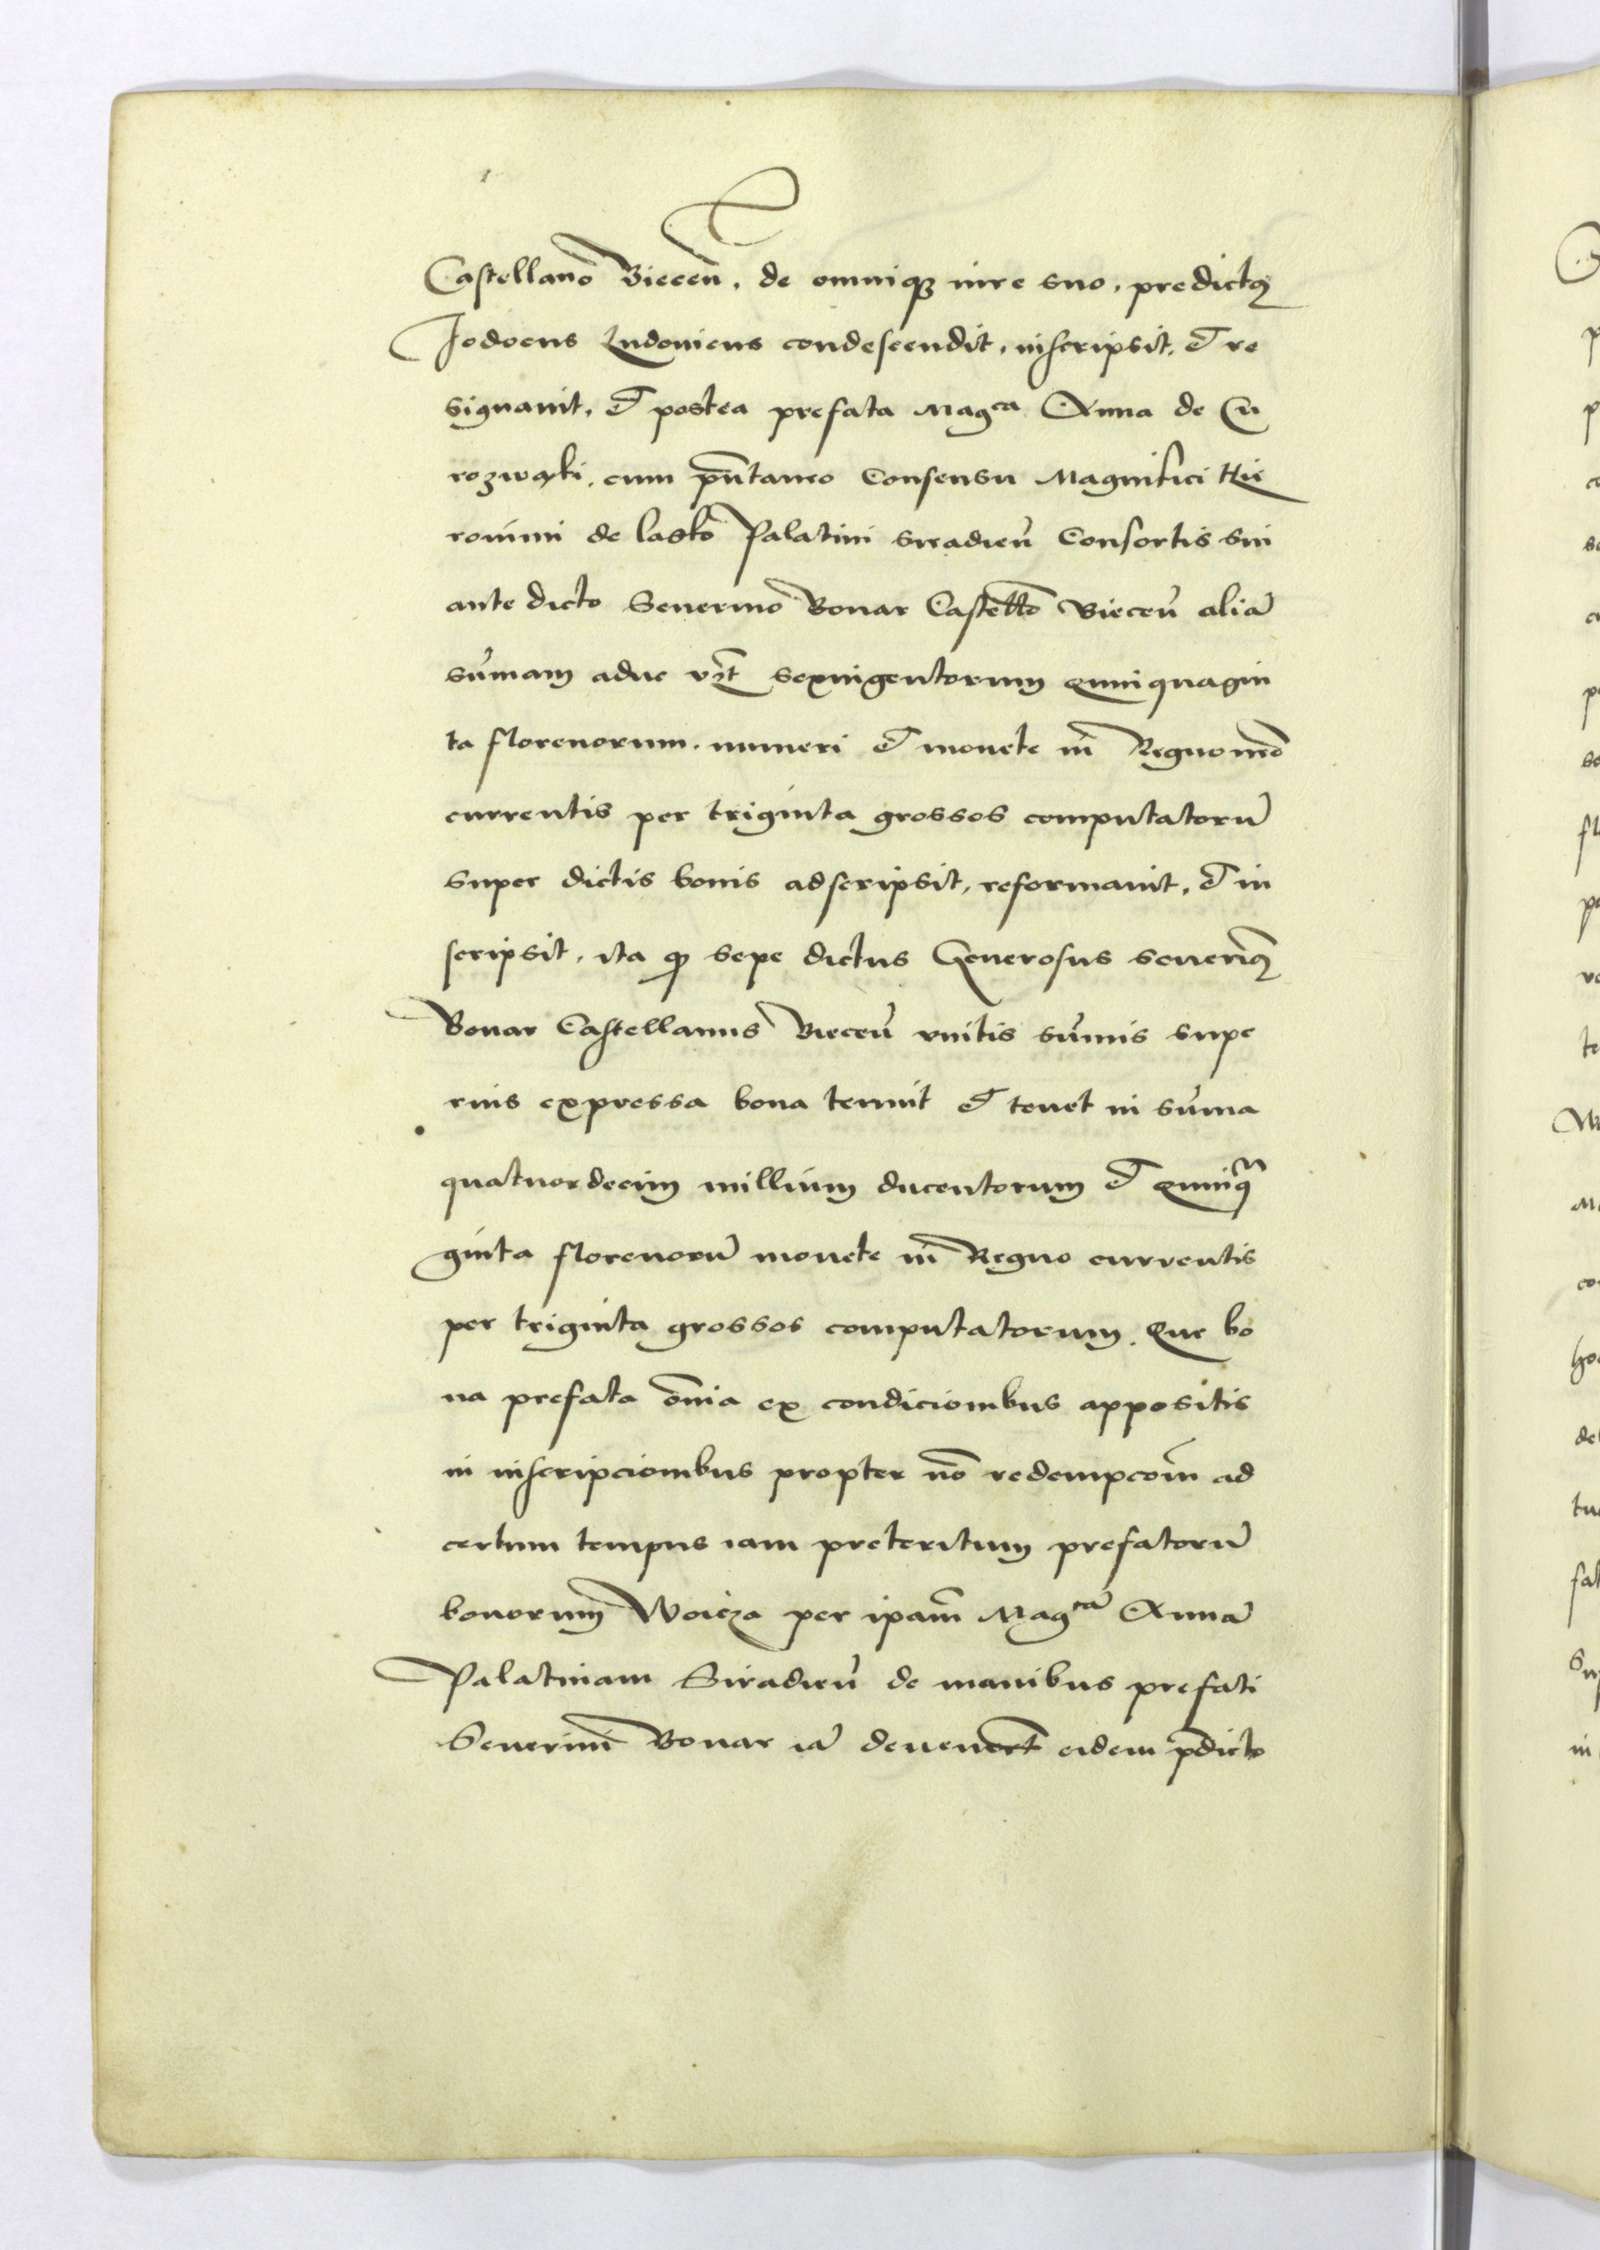 Castellano Biecen̄, de omniqꝫ iure suo, predictꝰ
Jodocus Ludouicus condescendit, inscripsit, et re
signauit, et postea prefata Magca Anna de Cu
rozwąki, cum Consensu Magnifici Hie
ronimi de lasko Palatini Siradien̄ Consortis sui
ante dicto Seuerino Bonar Castellō Biecen̄ aliā
sūmam aduc vꝫt sexingentorum quinquagin
ta florenorum, numeri et monete in Regno meo
currentis per triginta grossos computatorū
super dictis bonis adscripsit, reformauit, et in
scripsit, ita ꝙ sepe dictus Generosus Seuerinꝰ
Bonar Castellanus Biecen̄ vnitis sūmis supe
rius expressa bona tenuit et tenet in sūma
quatuordecim millium ducentorum et quinqua
ginta florenorū monete in Regno currentis
per triginta grossos computatorum. Que bo
na prefata om̄ia ex condicionibus appositis
in inscripcionibus propter nō redempcōm ad
certum tempus iam preteritum prefatorū
bonorum Woicza per ipam̄ Magcā Annā
Palatinam Siradien̄ de manibus prefati
Seuerini Bonar iā deuenert̄ eidem p̄dicto